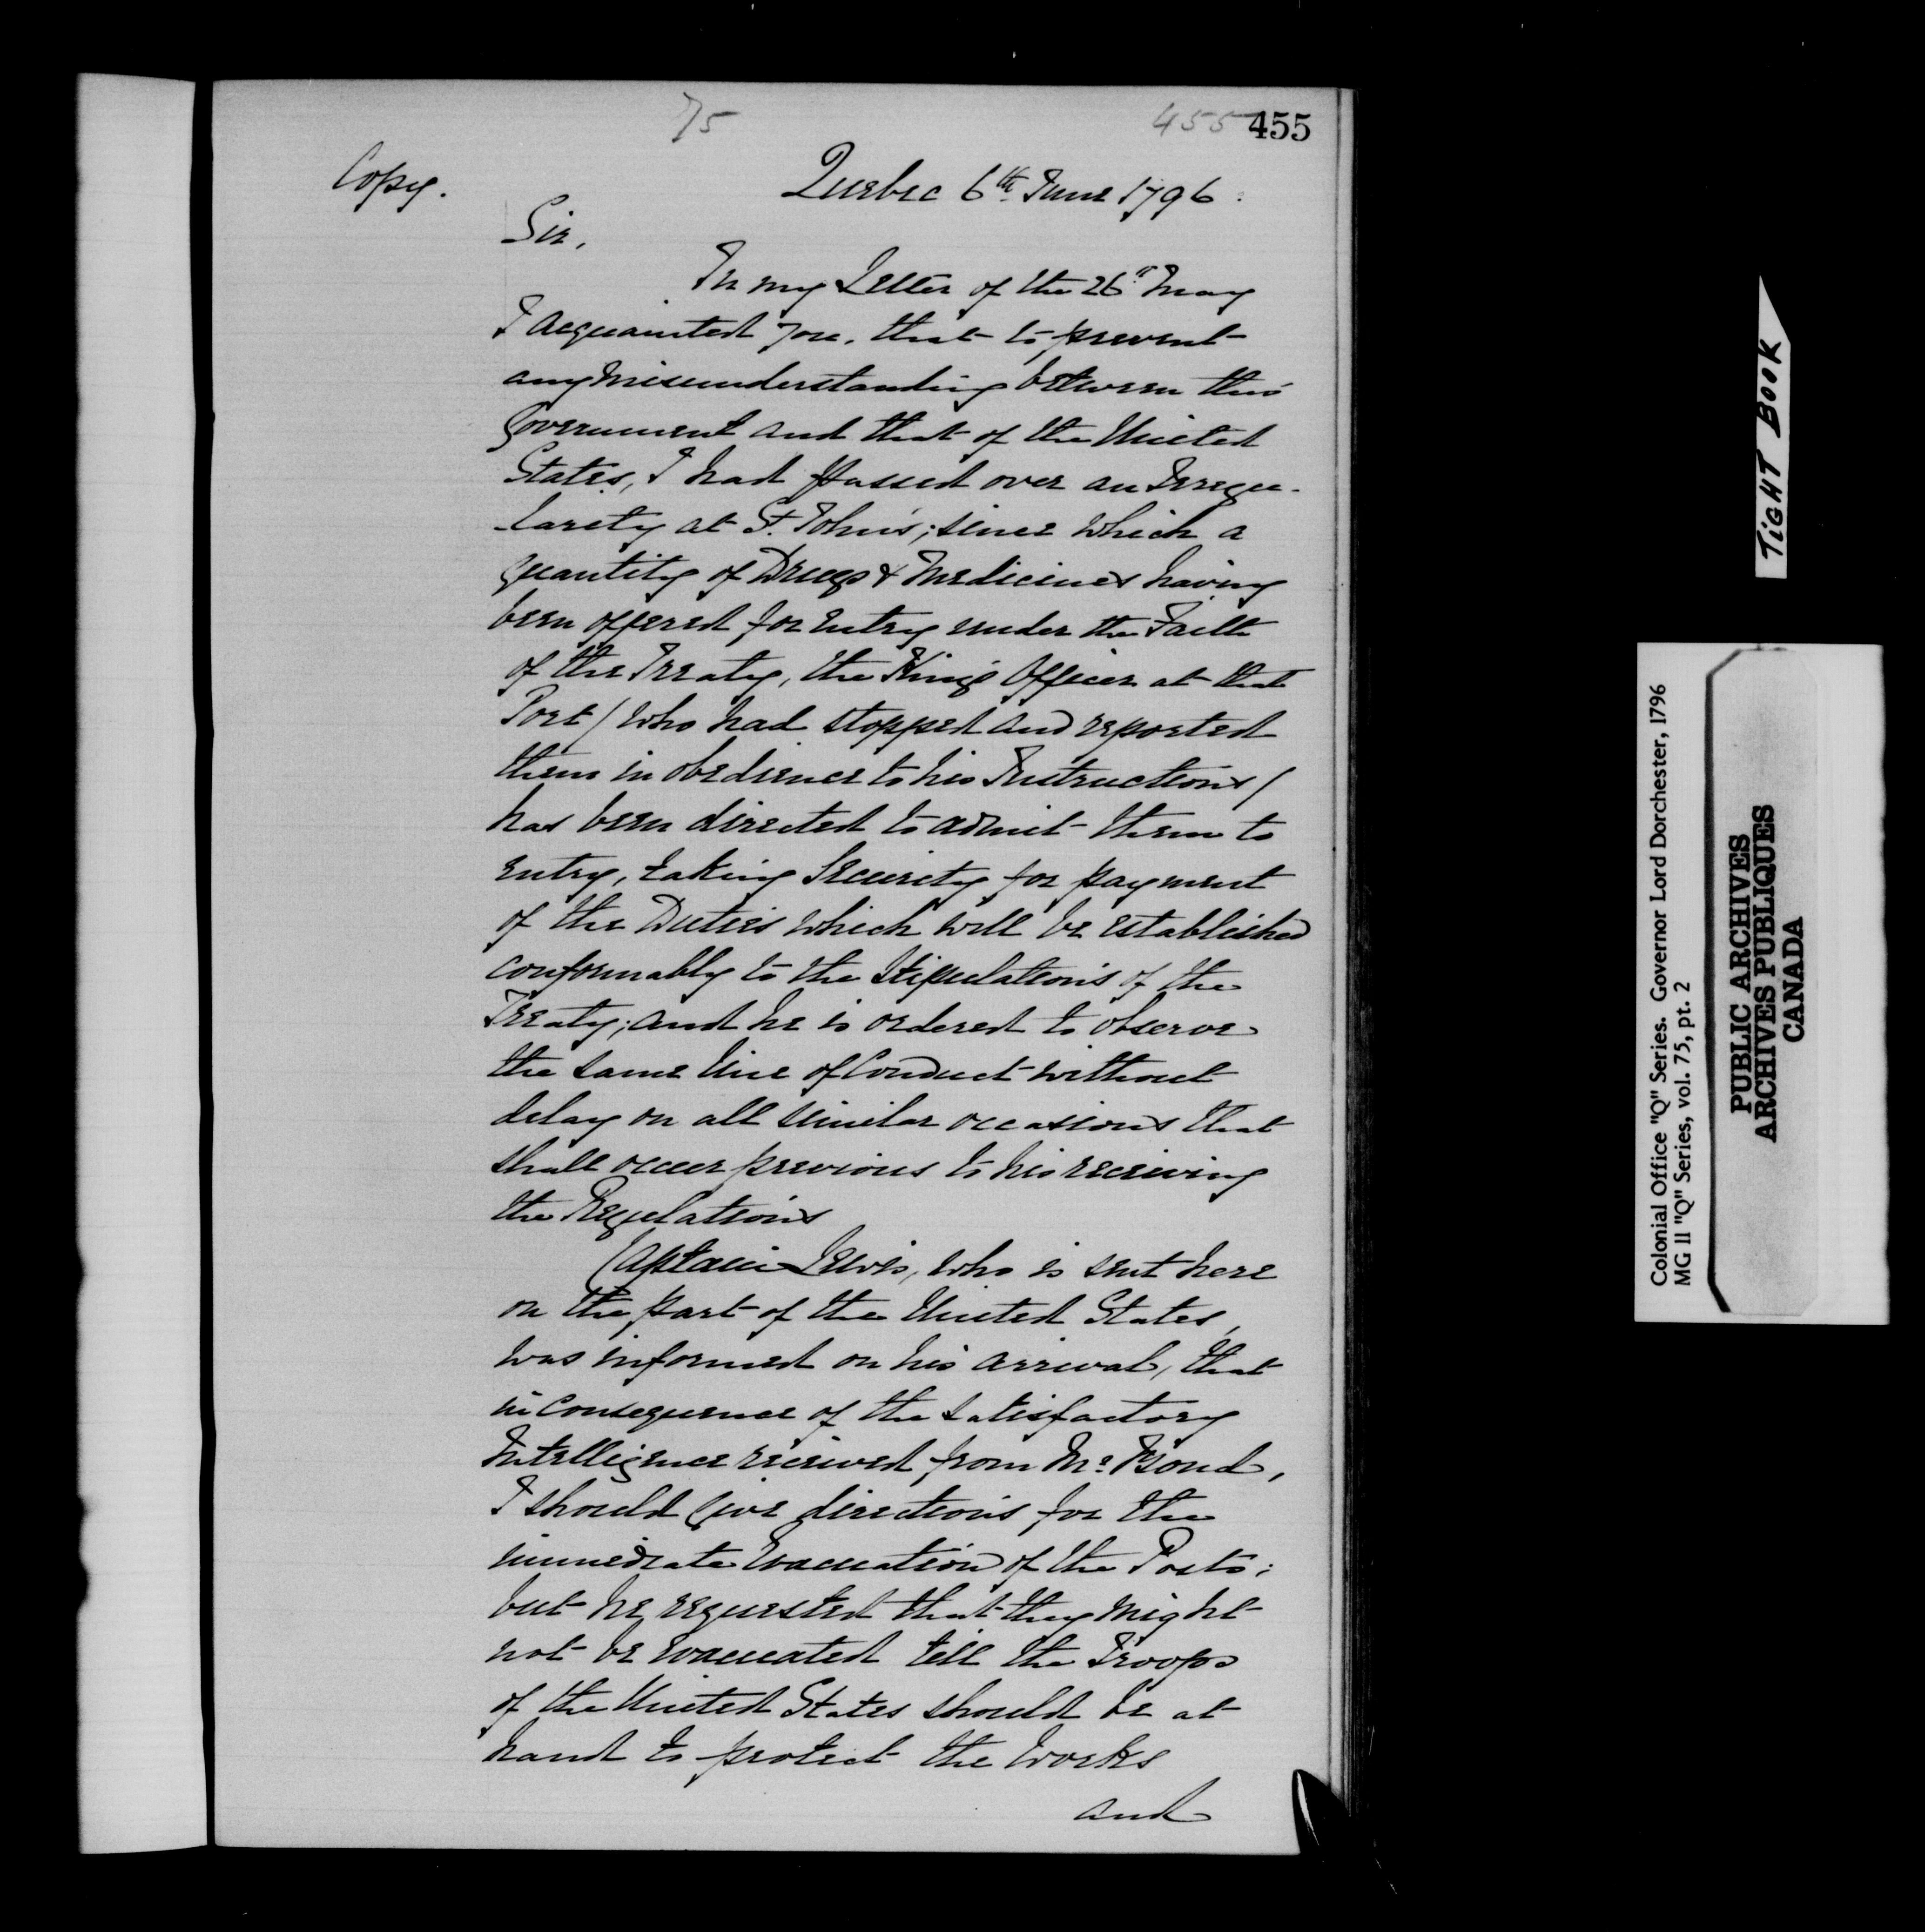 75
455 455
Copy.
Quebec 6th June 1796.
Sir,
In my Letter of the 26th May
I acquainted you, that to prevent
any misunderstanding between this
Government and that of the United
States, I had passed over an Irregu-
larity at St. John's; since which a
quantity of Drugs & Medicines having
been offered for entry under the Faith
of the Treaty, the King's Officer at that
Port (who had stopped and reported
them in obedience to his Instructions)
has been directed to admit them to
entry, taking Security for payment
of the Duties which will be established
conformably to the Stipulations of the
Treaty; and he is ordered to observe
the same line of Conduct without
delay on all similar occasions that
shall occur previous to his receiving
the Regulations
Captain Lewis, who is sent here
on the part of the United States,
was informed on his arrival, that
in consequence of the satisfactory
Intelligence received from Mr Bond,
I should give directions for the
immediate Evacuation of the Posts;
but he requested that they might
not be evacuated till the Troops
of the United States should be at
hand to protect the Works
and
TIGHT BOOK
Colonial Office "Q" Series. Governor Lord Dorchester, 1796
MG 11 "Q" Series, vol. 75, pt. 2
PUBLIC ARCHIVES
ARCHIVES PUBLIQUES
CANADA